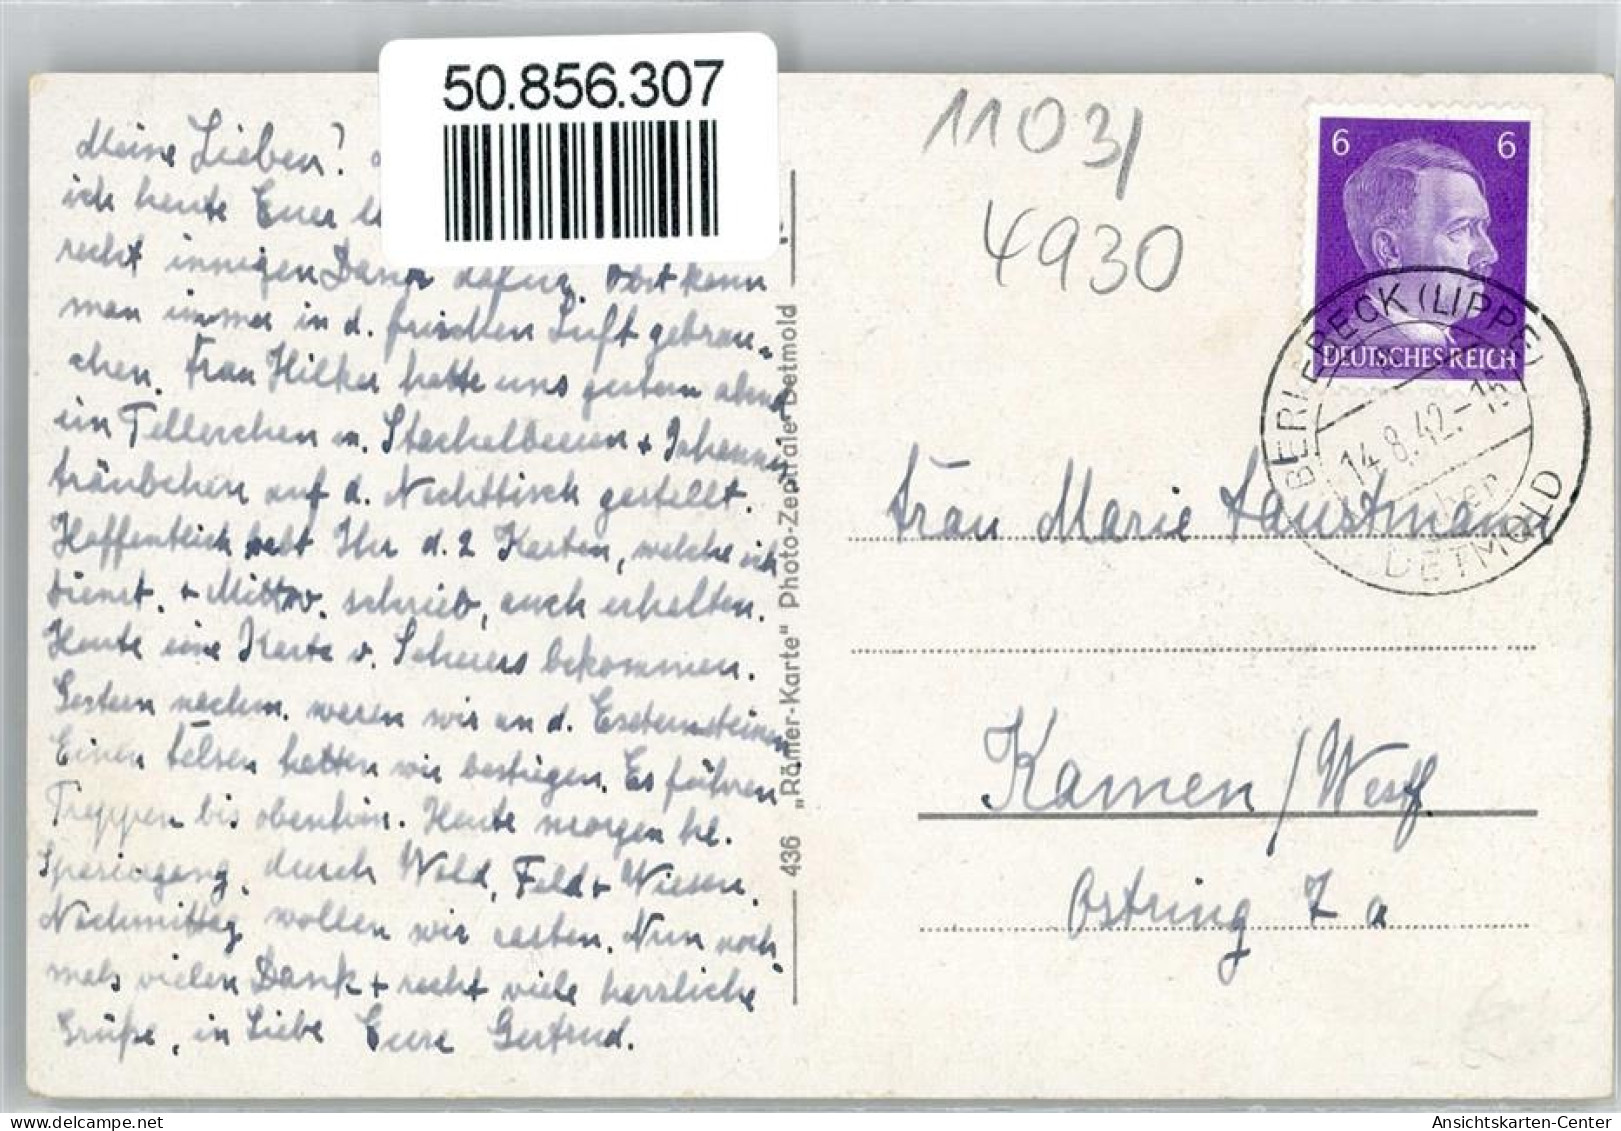 50.856.307
Meine Lieben!
ich heute Euer
recht innigen Dank dafür. Obst kann
man immer in d. frischen Luft gebrau-
chen. Frau Hilker hatte uns gestern abend
ein Tellerchen m. Stachelbeeren + Johannis
träubchen auf d. Nachttisch gestellt.
Hoffentlich habt Ihr d. 2 Karten, welche ich
Dienst. + Mittw. schrieb, auch erhalten.
Heute eine Karte v. Scheers bekommen.
Gestern nachm. waren wir an d. Externsteinen
Einen Felsen hatten wir bestiegen. Es führen
Treppen bis obenhin. Heute morgen kl.
Spaziergang, durch Wald, Feld + Wiesen.
Nachmittag wollen wir rasten. Nun noch
mals vielen Dank + recht viele herzliche
Grüße, in Liebe Eure Gertrud.
436 „Römer-Karte" Photo-Zentrale Detmold
1103/
4930
6 6
DEUTSCHES REICH
BERLEBECK (LIPPE)
14.8.42.-15
über
DETMOLD
Frau Marie Faustmann
Kamen/Westf.
Ostring 7 a
AnsichtsKarten-Center